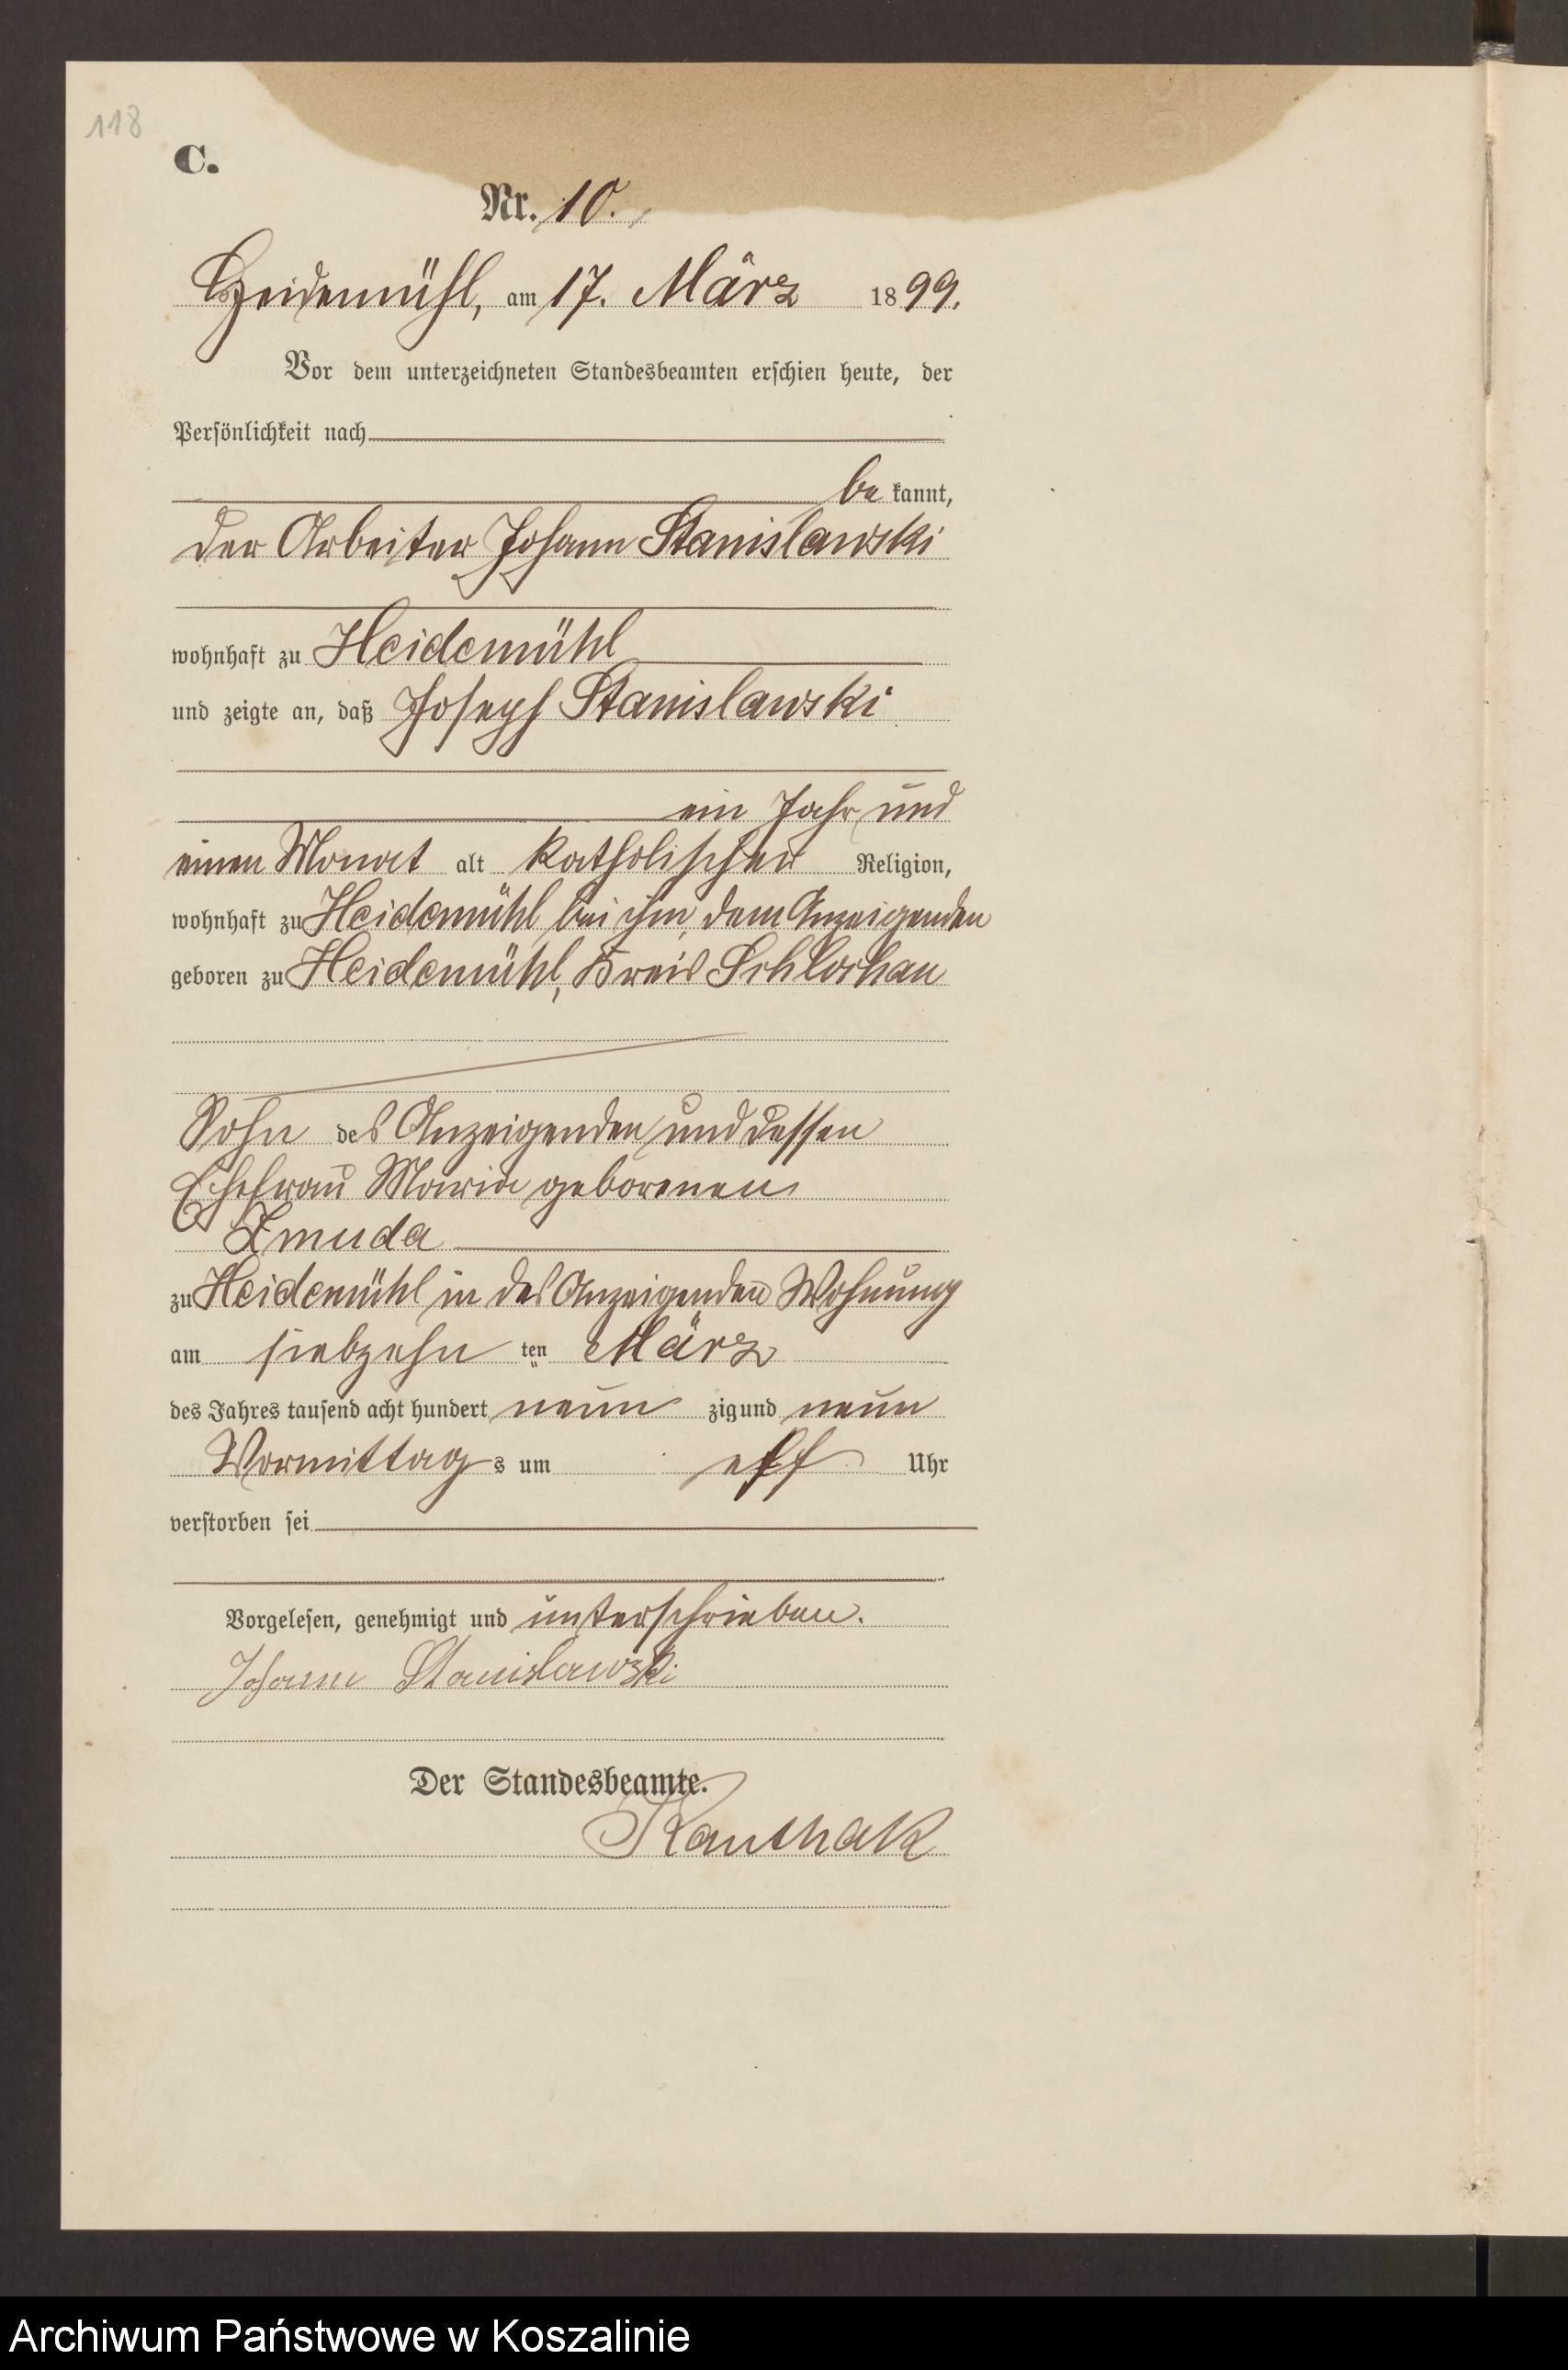 118
C.
Nr. 10.
Heidemühl, am 17. März 1899.
Vor dem unterzeichneten Standesbeamten erschien heute, der
Persönlichkeit nach
be kannt,
der Arbeiter Johann Stanislawski
wohnhaft zu Heidemühl
und zeigte an, daß Joseph Stanislawski
ein Jahr und
einen Monat alt katholischer Religion,
wohnhaft zu Heidemühl bei ihm, dem Anzeigenden
geboren zu Heidemühl, Kreis Schlochau
Sohn des Anzeigenden und dessen
Ehefrau Maria geborenen
Zmuda
zu Heidemühl in des Anzeigenden Wohnung
am siebzehn ten März
des Jahres tausend acht hundert neun zig und neun
Vormittag s um elf Uhr
verstorben sei
Vorgelesen, genehmigt und unterschrieben.
Johann Stanislawski
Der Standesbeamte.
Kanthak
Archiwum Państwowe w Koszalinie